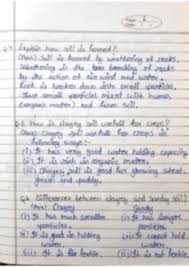 Q.4 Explain how soil is formed?
(Ans) Soil is formed by weathering of rocks.
Weathering is the breaking of rocks
by the action of air wind and water.
Rock is broken down into small particles.
These small particles mixed with humus
(organic matter) and form soil.
Q.5 How is clayey soil useful for crops?
(Ans) Clayey soil useful for crops in
following ways:-
(i) It has very good water holding capacity
(ii) It is rich in organic matter.
(iii) Clayey soil is good for growing wheat,
gram and paddy.
Q.6 Differences between clayey and sandy soil?
(Ans) Clayey Sandy
(i) It has much smaller (i) It has larger
particles. particles.
(ii) It is good in holding (ii) It cannot hold
water. water.
(iii) It is fertile. (iii) It is not fertile.